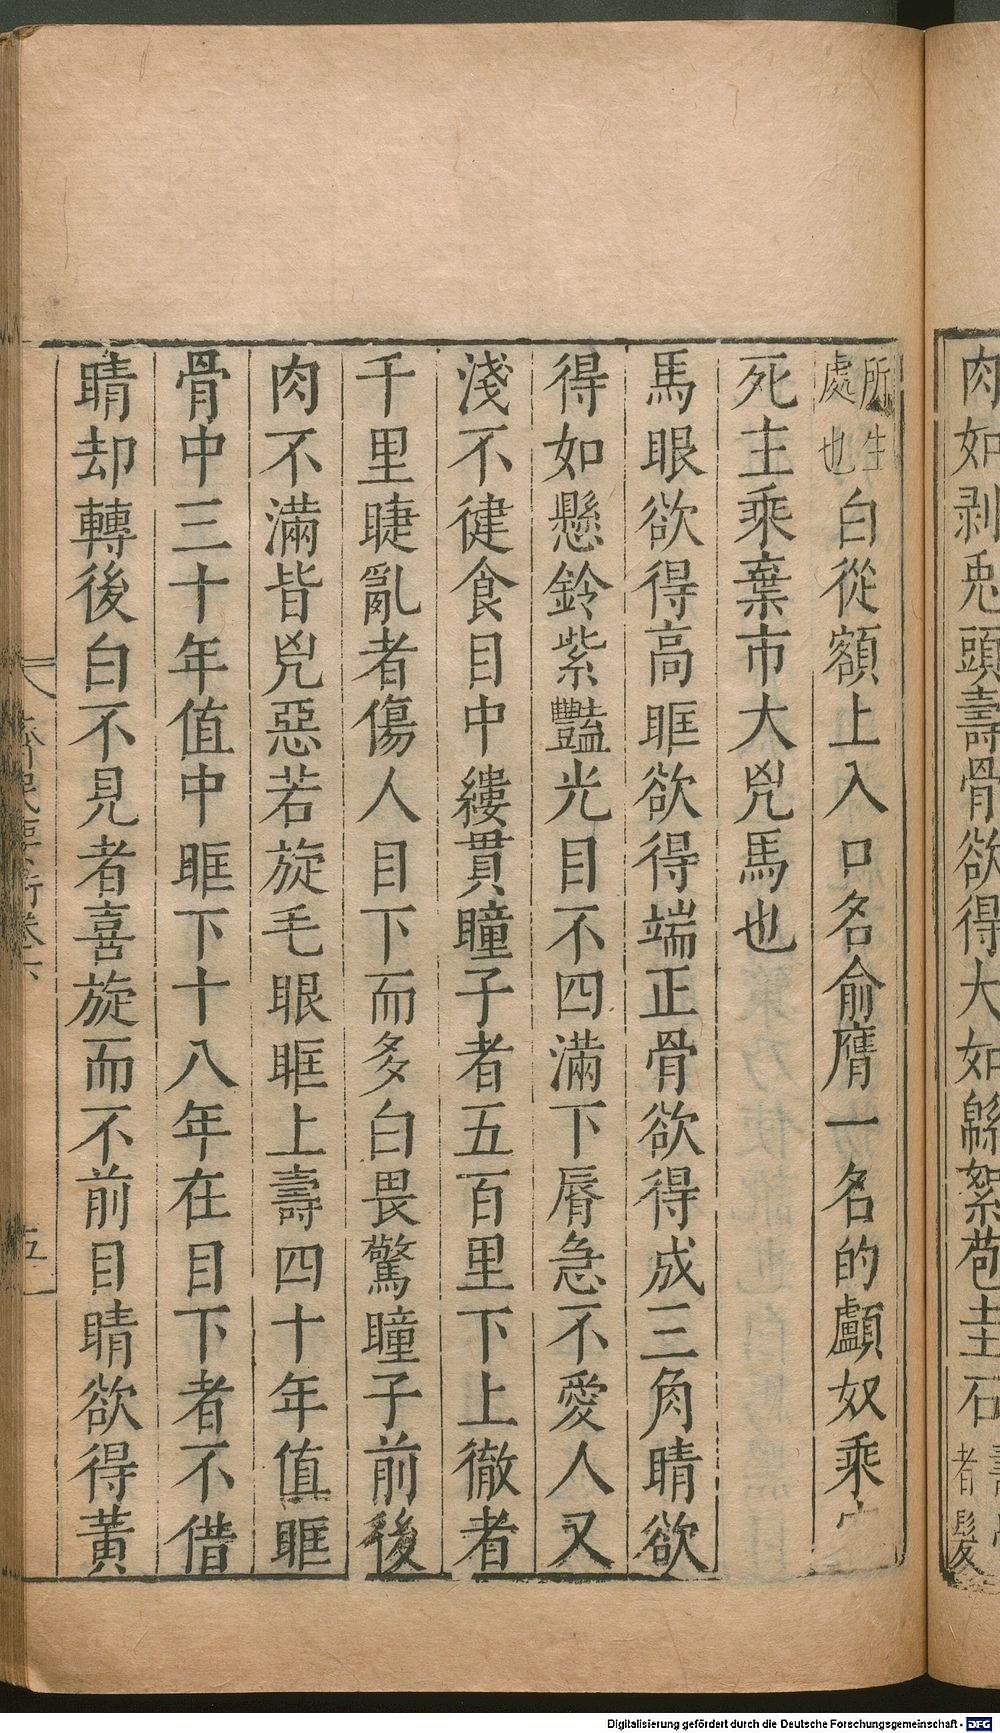 肉如剥兎頭壽骨欲得大如緜絮苞圭石
者髮
所生
處也
白從額上入口名俞膺一名的顱奴乘
死主乘棄市大兇馬也
馬眼欲得高眶欲得端正骨欲得成三角睛欲
得如懸鈴紫豔光目不四滿下脣急不愛人又
淺不健食目中縷貫瞳子者五百里下上徹者
千里睫亂者傷人目下而多白畏驚瞳子前後
肉不滿皆兇惡若旋毛眼眶上壽四十年值眶
骨中三十年值中眶下十八年在目下者不借
睛却轉後白不見者喜旋而不前目睛欲得黃
齊民要術卷六
五
Digitalisierung gefördert durch die Deutsche Forschungsgemeinschaft - DFG